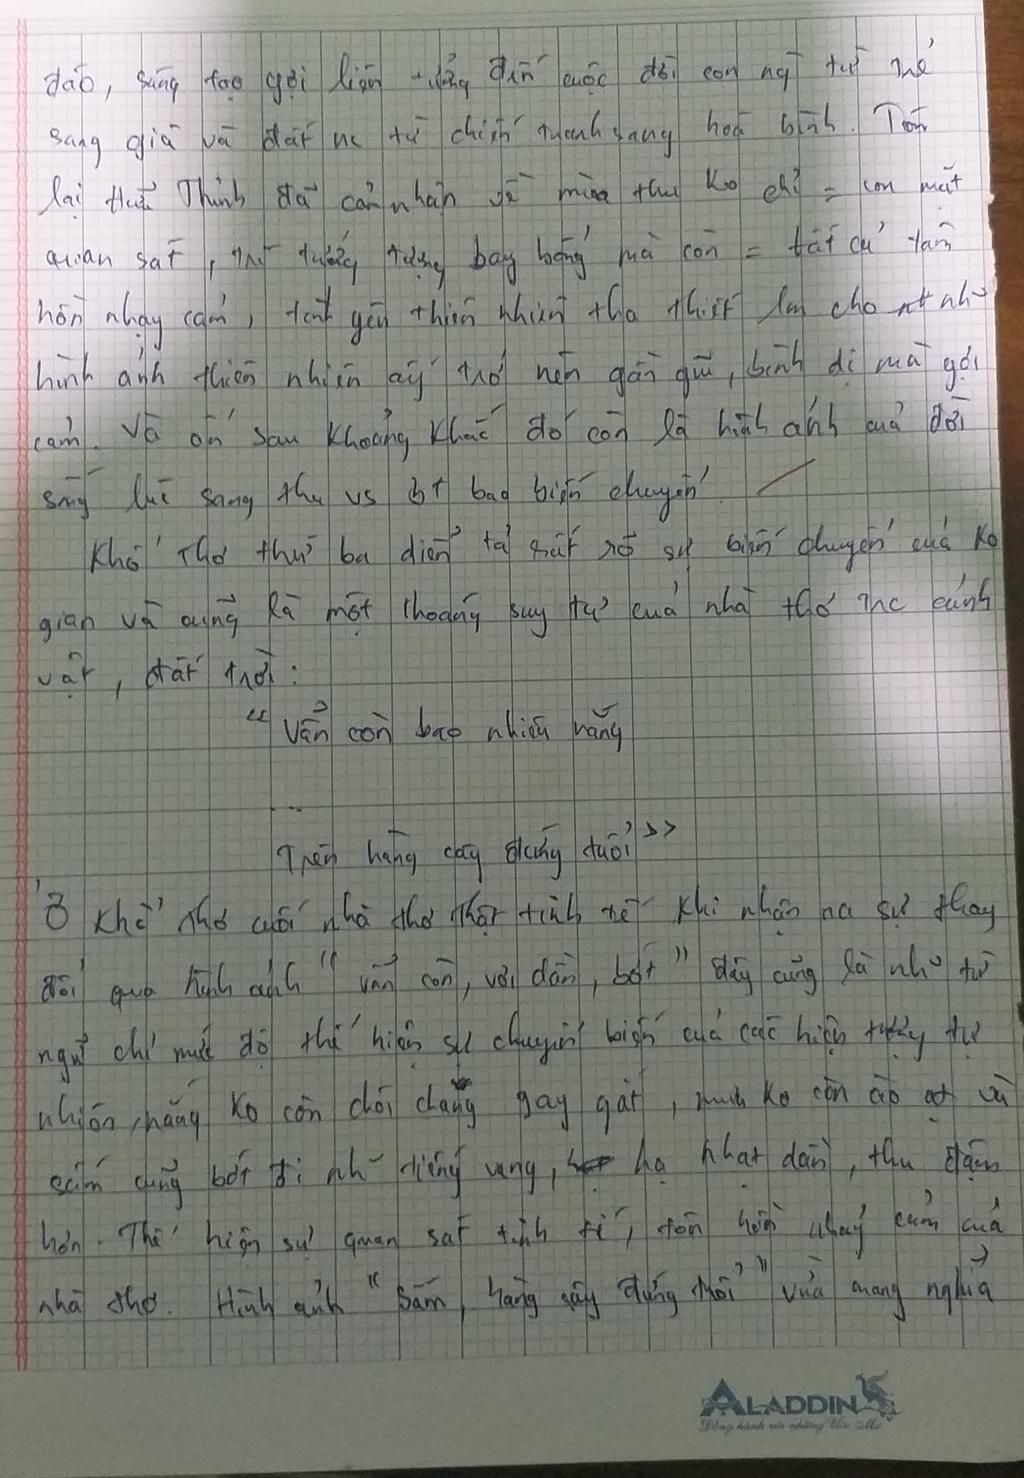 đáo, sáng tạo gợi liên tưởng đến cuộc đời con ng từ trẻ
sang già và đất nc từ chiến tranh sang hoà bình. Tóm
lại Hữu Thỉnh đã cảm nhận về mùa thu ko chỉ = con mắt
quan sát, trí tưởng tượng bay bổng mà còn = tất cả tâm
hồn nhạy cảm, tình yêu thiên nhiên tha thiết làm cho như
hình ảnh thiên nhiên ấy trở nên gần gũi, bình dị mà gợi
cảm. Và ẩn sau khoảng khắc đó còn là hình ảnh của đời
sống lúc sang thu vs bt bao biến chuyển.
Khổ thơ thứ ba diễn tả rất rõ sự biến chuyển của ko
gian và cũng là một thoáng suy tư của nhà thơ trc cảnh
vật, đất trời:
"Vẫn còn bao nhiêu nắng
...
Trên hàng cây đứng tuổi"
Ở khổ thơ cuối nhà thơ thật tinh tế khi nhận ra sự thay
đổi qua hình ảnh "vẫn còn, vơi dần, bớt" đây cũng là như từ
ngữ chỉ mức độ thể hiện sự chuyển biến của các hiện tượng tự
nhiên, nắng ko còn chói chang gay gắt, mưa ko còn ào ạt và
sấm cũng bớt đi nh tiếng vang, hạ nhạt dần, thu đậm
hơn. Thể hiện sự quan sát tinh tế, tâm hồn nhạy cảm của
nhà thơ. Hình ảnh "Sấm, hàng cây đứng tuổi" vừa mang nghĩa
ALADDIN
Đồng hành với những Ước Mơ